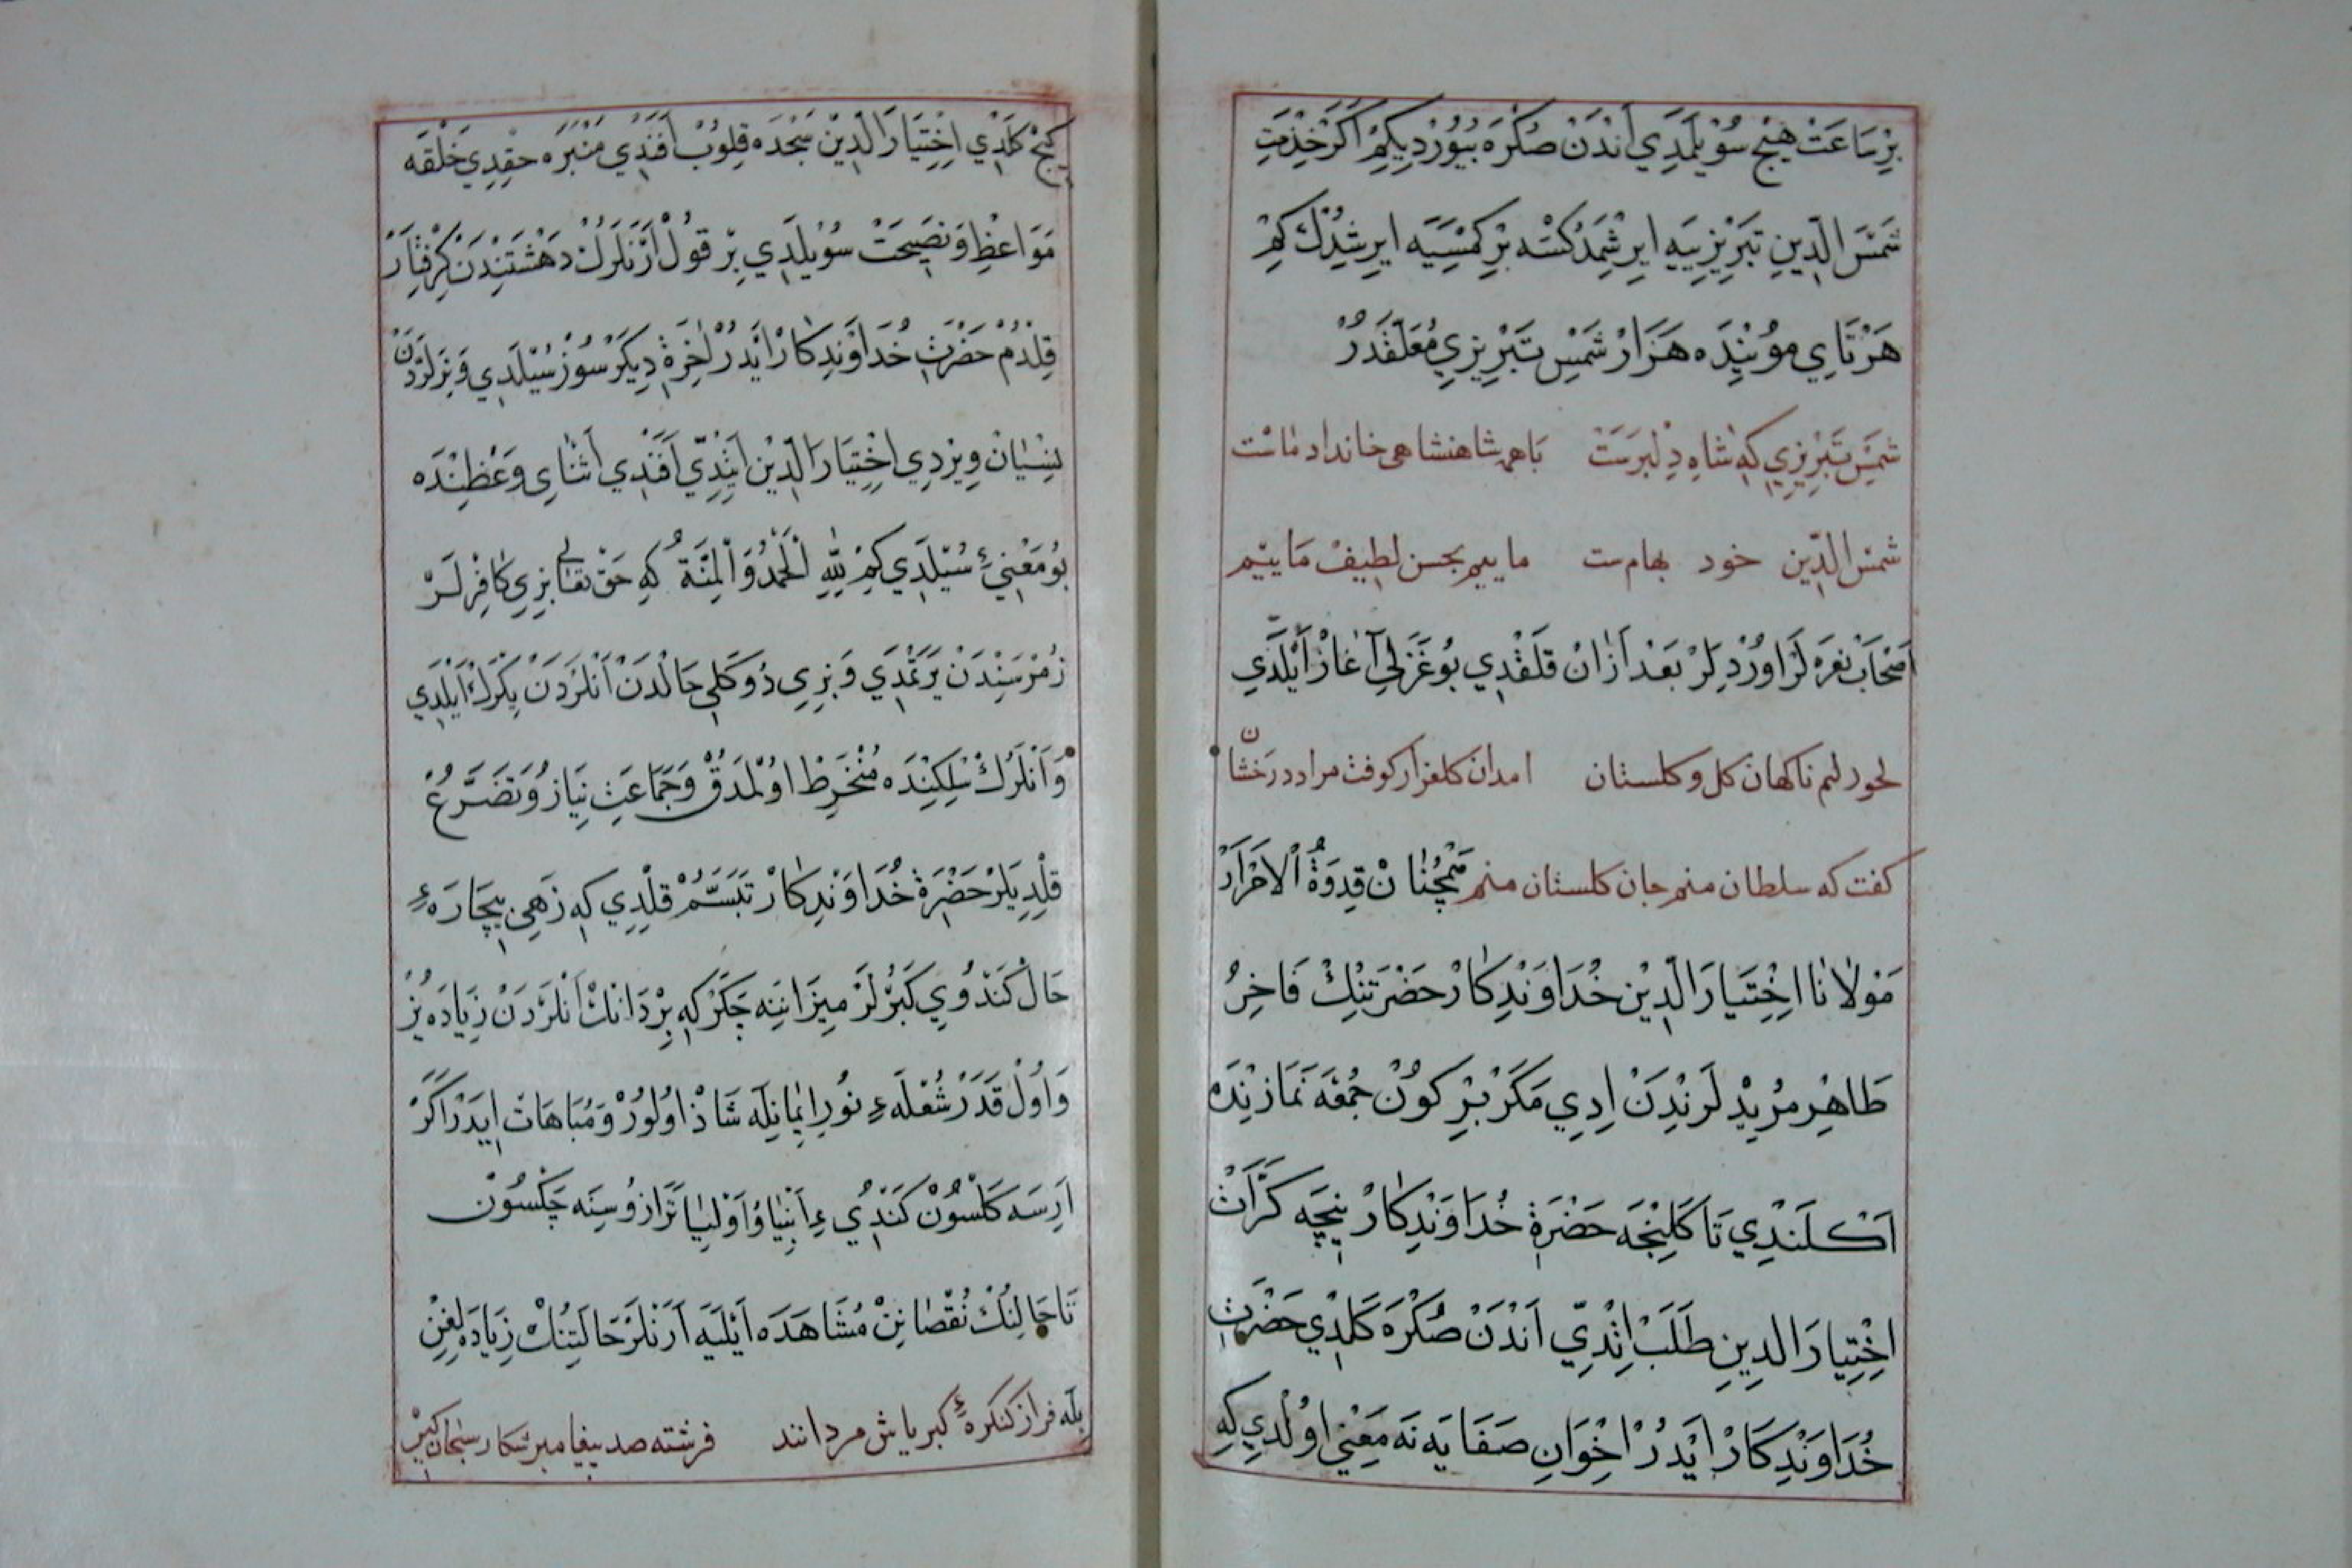 بِرْ سَاعَتْ هِيچْ سُوْيلَمَدِي اَنْدَنْ صُكْرَه بُيُوْرْدِيكِمْ اَكَرْ خِذْمَتِ
شَمْسَ الدِّينِ تَبْرِيْزِييَه اِيرِشْمَدُكسَه بِرْ كِمْسَيَه اِيرِشِدُكْ كِمْ
هَرْتَايِ مُويِنْدَه هَزَارْ شَمْسِ تَبْرِيزِي مُعَلَّقْدُرْ
شَمْسِ تَبْرِيزِي كِه شَاهِ دِلْبَرَسْتْ بَاهمه شاهنشاهى خاندار ماست
شمسُ الدِّين خود بهام ست ماييم بحسن لطيف ماييم
اَصْحَابْ نَعرَه لَرْ اُورْدِلَرْ بَعْدْ اَزْ اٰنْ قَلْقْدِي بُوغَزَلِي آغَازْ اَيْلَدِي
ناكهان كل وكلستان امدان كلعزار كوفت مرا در رخشان
كفت كه سلطان منم جان كلستان منم مَمْچُنَانْ قِدوَةُ الْاَحْرَارْ
مَوْلَانَا اِخْتِيَارَ الدِّيْن خُدَاوَنْدِكَارْ حَضْرَتِنْكْ فَاخِرُ
طَاهِرْ مُرِيْدْلَرِنْدَنْ اِدِي مَكَرْ بِرْ كُونْ جُمْعَه نَمَازِنْدَه
اَكْلَنْدِي تَا كَلِنْجَه حَضْرَةِ خُدَاوَنْدِكَارْ نِيچَه كَرَّاتْ
اِخْتِيَارَ الدِينِ طَلَبْ اِتْدِي اَنْدَنْ صُكْرَه كَلْدِي حَضْرَتِ
خُدَاوَنْدِكَارْ اَيْدُرْ اِخْوَانِ صَفَايَه نَه مَعْنِي اُولْدِي كِه
كِيجْ كَلْدِي اِخْتِيَارَ الدِّيْن سَجْدَه قِلُوبْ اَفَنْدِي مَنْبَرَه چِقْدِي خَلْقَه
مَوَاعِظْ وَ نَصِيحَتْ سُوْيلَدِي بِرْ قُولْ اَرَنْلَرُكْ دَهْشَتِنْدَنْ كِرِفْتَارْ
قِلْدُمْ حَضْرَتِ خُدَاوَنْدِكَارْ اَيْدُرْ لَاخِرَة دِيكَرْ سُوزْ سُيْلَدِي وَ بِزلَرْدَنْ
نِسْيَانْ وِيرْدِي اِخْتِيَارَ الدِّيْن اَيْتْدِي اَفَنْدِي اَثْنَاىِ وَعْظِنْدَه
بُو مَعْنِيءِ سُيْلَدِي كِمْ لِلّٰهِ الْحَمْدُ وَالْمِنَّةُ كِه حَقْ تَعَالٰى بِزِي كَافِرْلَرْ
زُمْرَسِنْدَنْ يَرَتْمَدِي وَ بِزِى دُوكَلِي حَالْدَنْ اَنْلَرْدَنْ يِكْرَكْ اَيْلَدِي
وَ اَنْلَرُكْ سِلْكِنْدَه مُنْخَرِطْ اُولْمَدُقْ وَ جَمَاعَتِ نِيَازْ وُ تَضَرُّعْ
قِلْدِيلَرْ حَضْرَةِ خُدَاوَنْدِكَارْ تَبَسُّمْ قِلْدِي كِه زَهِى بِيچَارَهءِ
حَالْ كَنْدُويِ كَبْرْلَرْ مِيزَانِنَه چَكَرْ كِه بِرْ دَانَكْ اَنْلَرْدَنْ زِيَادَه يُزْ
وَ اُولْ قَدَرْ شُعْلَهءِ نُورِ اِيمَانِلَه شَاذْ اُولُورْ وَ مُبَاهَاتْ اِيدَرْ اَكَرْ
اَرِسَه كَلْسُونْ كَنْدُيءِ اَنْبِيَا وُ اَوْلِيَا تَرَازُوسِنَه چَكْسُونْ
تَا حَالِنُكْ نُقْصَانِنْ مُشَاهَدَه اَيْلَيَه اَرَنْلَرْ حَالَتِنُكْ زِيَادَه لِغِنْ
بِلَه فراز كنكرهءِ كبرياش مردانند فرشته صيد پيغامبر شكار سبحان كير